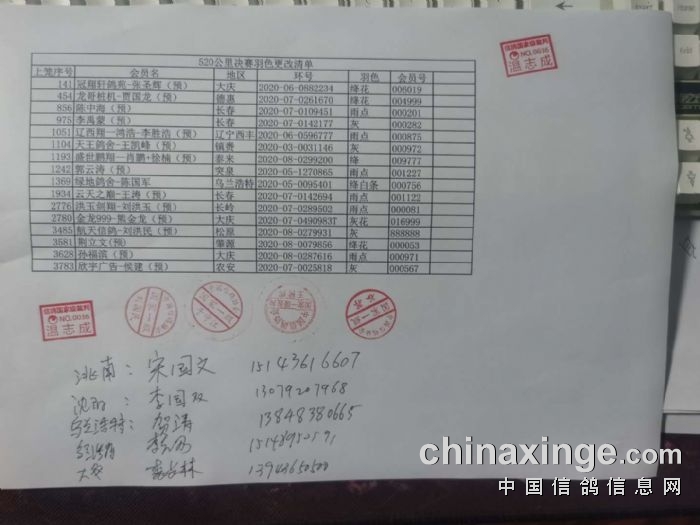 520公里决赛羽色更改清单
上笼序号 会员名 地区 环号 羽色 会员号
141 冠翔轩鸽苑-张圣辉（预） 大庆 2020-06-0882234 绛花 006019
454 龙哥桩机-贾国龙（预） 德惠 2020-07-0261670 绛花 004999
856 陈中海（预） 长春 2020-07-0109451 雨点 000201
975 李禹蒙（预） 长春 2020-07-0142177 灰 000282
1051 辽西翔—鸿浩-李胜浩（预） 辽宁西丰 2020-06-0596777 雨点 000875
1104 天王鸽舍-王凯峰（预） 镇赉 2020-03-0031146 灰 000972
1193 盛世鹏翔—肖鹏+徐楠（预） 泰来 2020-08-0299200 绛 009777
1242 郭云涛（预） 突泉 2020-05-1270865 雨点 001227
1369 绿地鸽舍-陈国军 乌兰浩特 2020-05-0095401 绛白条 000756
1934 云天之巅-王涛（预） 长春 2020-07-0142694 雨点 001122
2776 洪玉剑翔-刘洪玉（预） 长岭 2020-07-0289502 雨点 000081
2780 金龙999-熊金龙（预） 大庆 2020-07-0490983T 灰花 016999
3485 航天信鸽-刘洪民（预） 松原 2020-08-0279931 灰 888888
3581 荆立文(预） 肇源 2020-08-0079856 绛花 000053
3628 孙福滨（预） 大庆 2020-08-0287616 雨点 000971
3783 欣宇广告-侯建（预） 农安 2020-07-0025818 灰 000567
信鸽国家级裁判
NO.0036
温志成
信鸽国家级裁判
NO.0036
温志成
国家一级
洮南： 宋国文 15143616607
李国双 13079207968
乌兰浩特： 贺涛 13848380665
大安 13943650500
chinaxinge.com
中国信鸽信息网